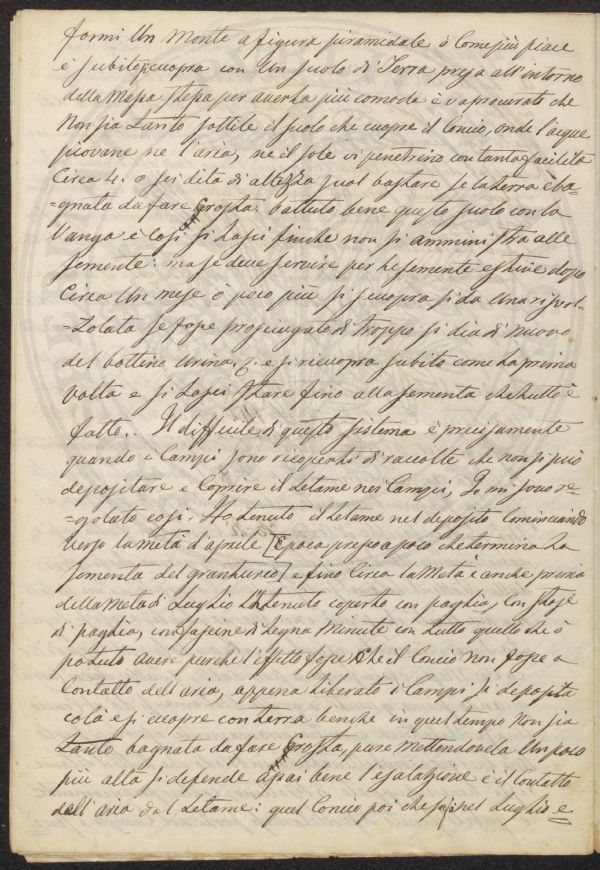 formi Un Monte a figura piramidale ò Come più piace
e subito si cuopra con Un suolo di Terra presa all'intorno
della Massa stessa per averla più comoda è và procurato che
Non sia Tanto sottile il suolo che cuopre il Concio, onde l'acque
piovane ne l'aria, ne il sole vi penetrino con tanta facilità
Circa 4. o sei dita di altezza puol bastare se la terra è ba=
=gnata da fare Crosta. battuto bene questo suolo con la
Vanga è Così si Lasci finche non si amministra alle
semente: ma se deve servire per le semente estive dopo
Circa Un mese ò poco più si scuopra si da Una rivol=
=tolata se fosse prosciugato di troppo si dia di nuovo
del bottino urina, e si ricuopra subito come la prima
volta e si Lasci stare fino alla sementa che tutto è
fatto. Il difficile di questo sistema è precisamente
quando i Campi sono ricoperti di raccolte che non si può
depositare e Coprire il Letame nei Campi, Io mi sono re=
=golato così. Ho tenuto il Letame nel deposito Cominciando
verso la metà d'aprile [è poco presso a poco che termina La
sementa del granturco] e fino Circa la Metà è anche prima
della Metà di Luglio L'ho tenuto coperto con paglia, con stoje
di paglia, con fascine di Legna Minute con tutto quello che ò
potuto avere purche l'effetto fosse Che il Concio Non fosse a
Contatto dell'aria, appena Liberato i Campi si deposita
colà e si cuopre con terra benche in quel tempo Non sia
Tanto bagnata da fare Crosta, pure Mettendovela Un poco
più alta si defende assai bene l'esalazione è il Contatto
dell'aria dal Letame: quel Concio poi che nel Luglio e